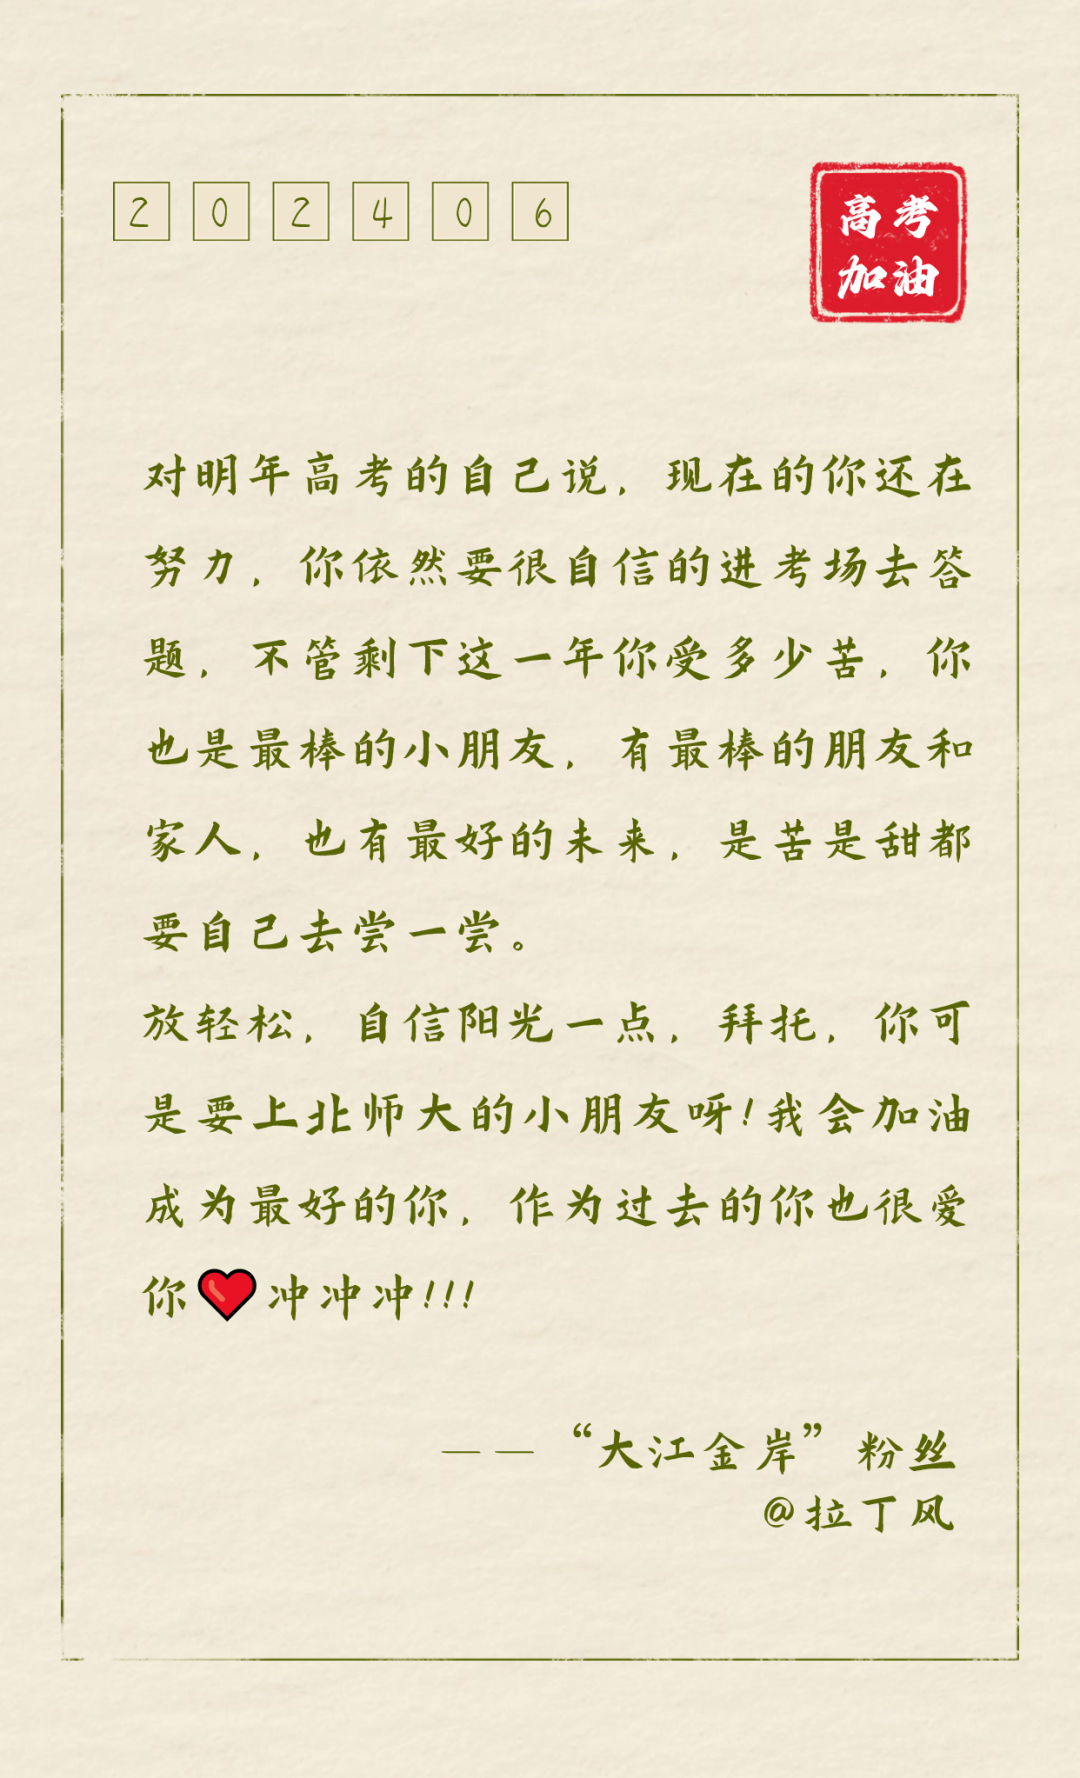 202406
高考
加油
对明年高考的自己说，现在的你还在
努力，你依然要很自信的进考场去答
题，不管剩下这一年你受多少苦，你
也是最棒的小朋友，有最棒的朋友和
家人，也有最好的未来，是苦是甜都
要自己去尝一尝。
放轻松，自信阳光一点，拜托，你可
是要上北师大的小朋友呀!我会加油
成为最好的你，作为过去的你也很爱
你❤️冲冲冲!!!
——“大江金岸”粉丝
@拉丁风